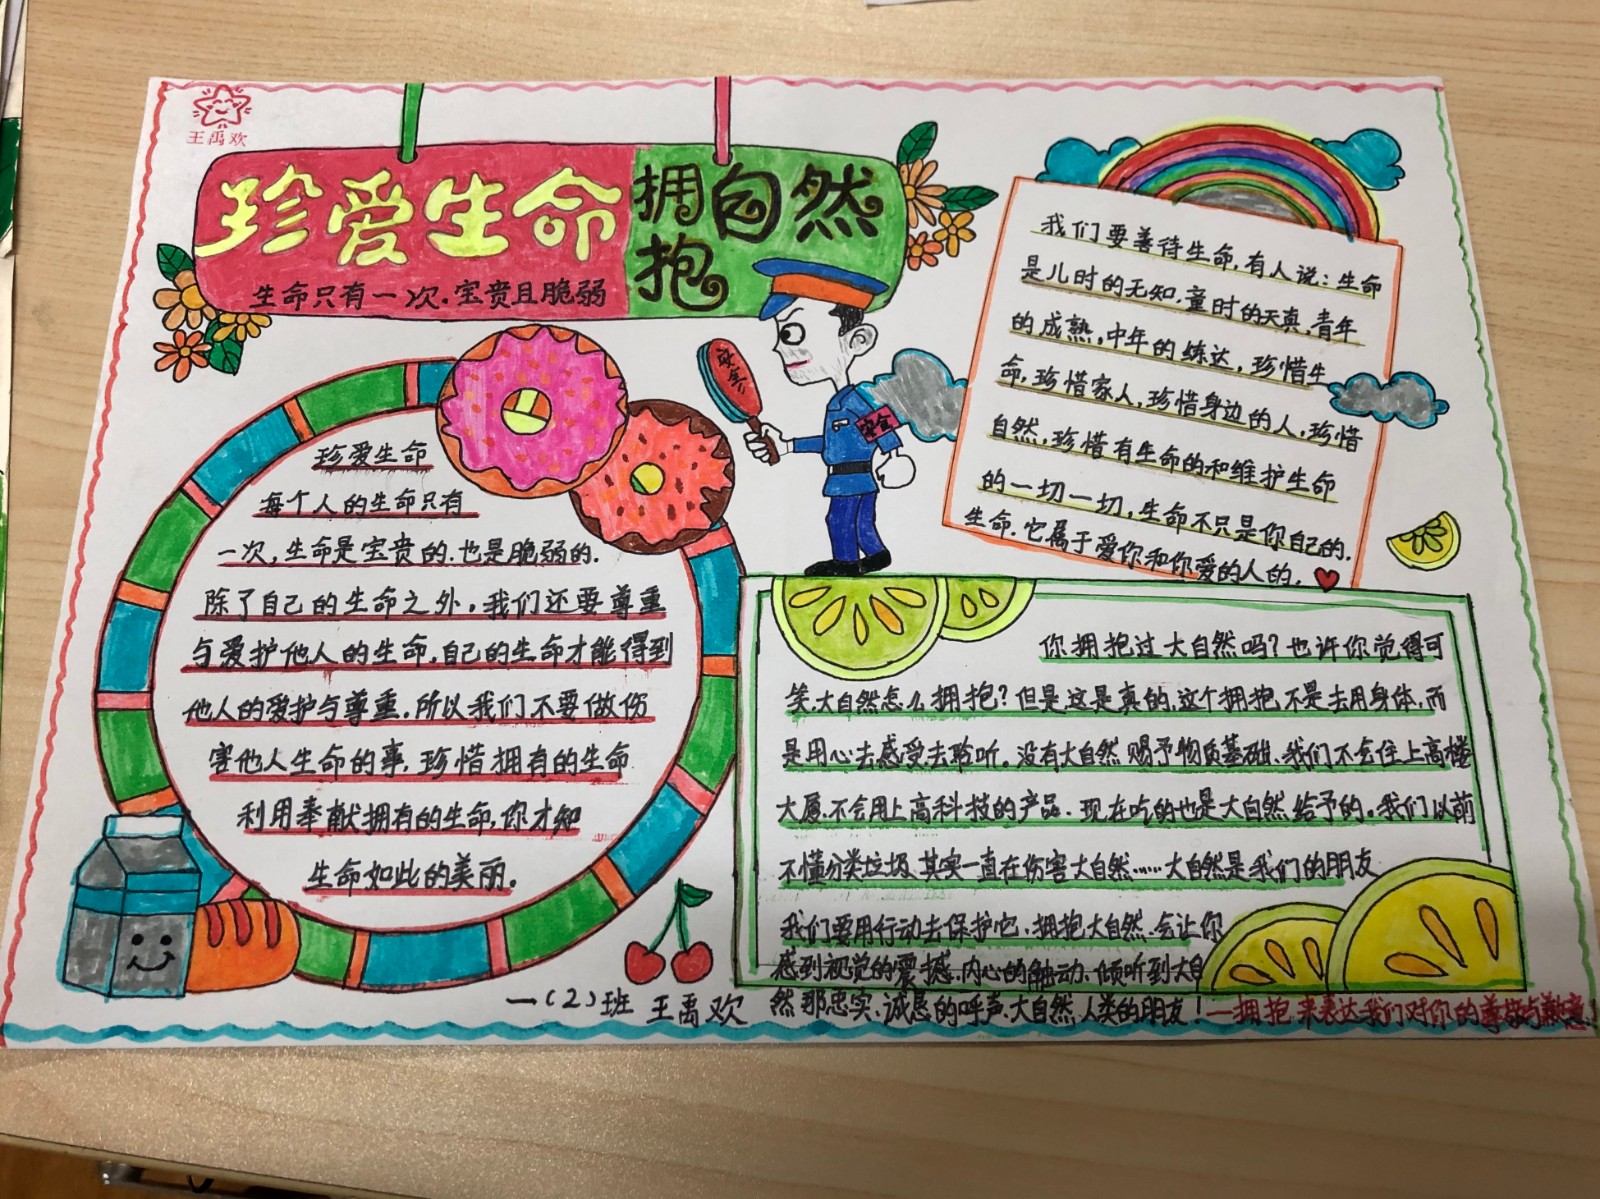 王禹欢
珍爱生命
拥抱自然
生命只有一次.宝贵且脆弱
安全
安全
珍爱生命
每个人的生命只有
一次,生命是宝贵的.也是脆弱的.
除了自己的生命之外,我们还要尊重
与爱护他人的生命.自己的生命才能得到
他人的爱护与尊重.所以我们不要做伤
害他人生命的事,珍惜拥有的生命
利用奉献拥有的生命,你才知
生命如此的美丽。
我们要善待生命,有人说:生命
是儿时的无知.童时的天真.青年
的成熟,中年的练达,珍惜生
命,珍惜家人,珍惜身边的人,珍惜
自然,珍惜有生命的和维护生命
的一切一切,生命不只是你自己的.
生命.它属于爱你和你爱的人的.
你拥抱过大自然吗?也许你觉得可
笑.大自然怎么拥抱?但是这是真的.这个拥抱不是去用身体,而
是用心去感受去聆听。没有大自然赐予物质基础.我们不会住上高楼
大厦.不会用上高科技的产品.现在吃的也是大自然给予的。我们以前
不懂分类垃圾.其实一直在伤害大自然……大自然是我们的朋友
我们要用行动去保护它.拥抱大自然.会让你
感到视觉的震撼.内心的触动.倾听到大自
然那忠实.诚恳的呼声.大自然.人类的朋友!—拥抱来表达我们对你的尊敬与歉意!
一(2)班 王禹欢